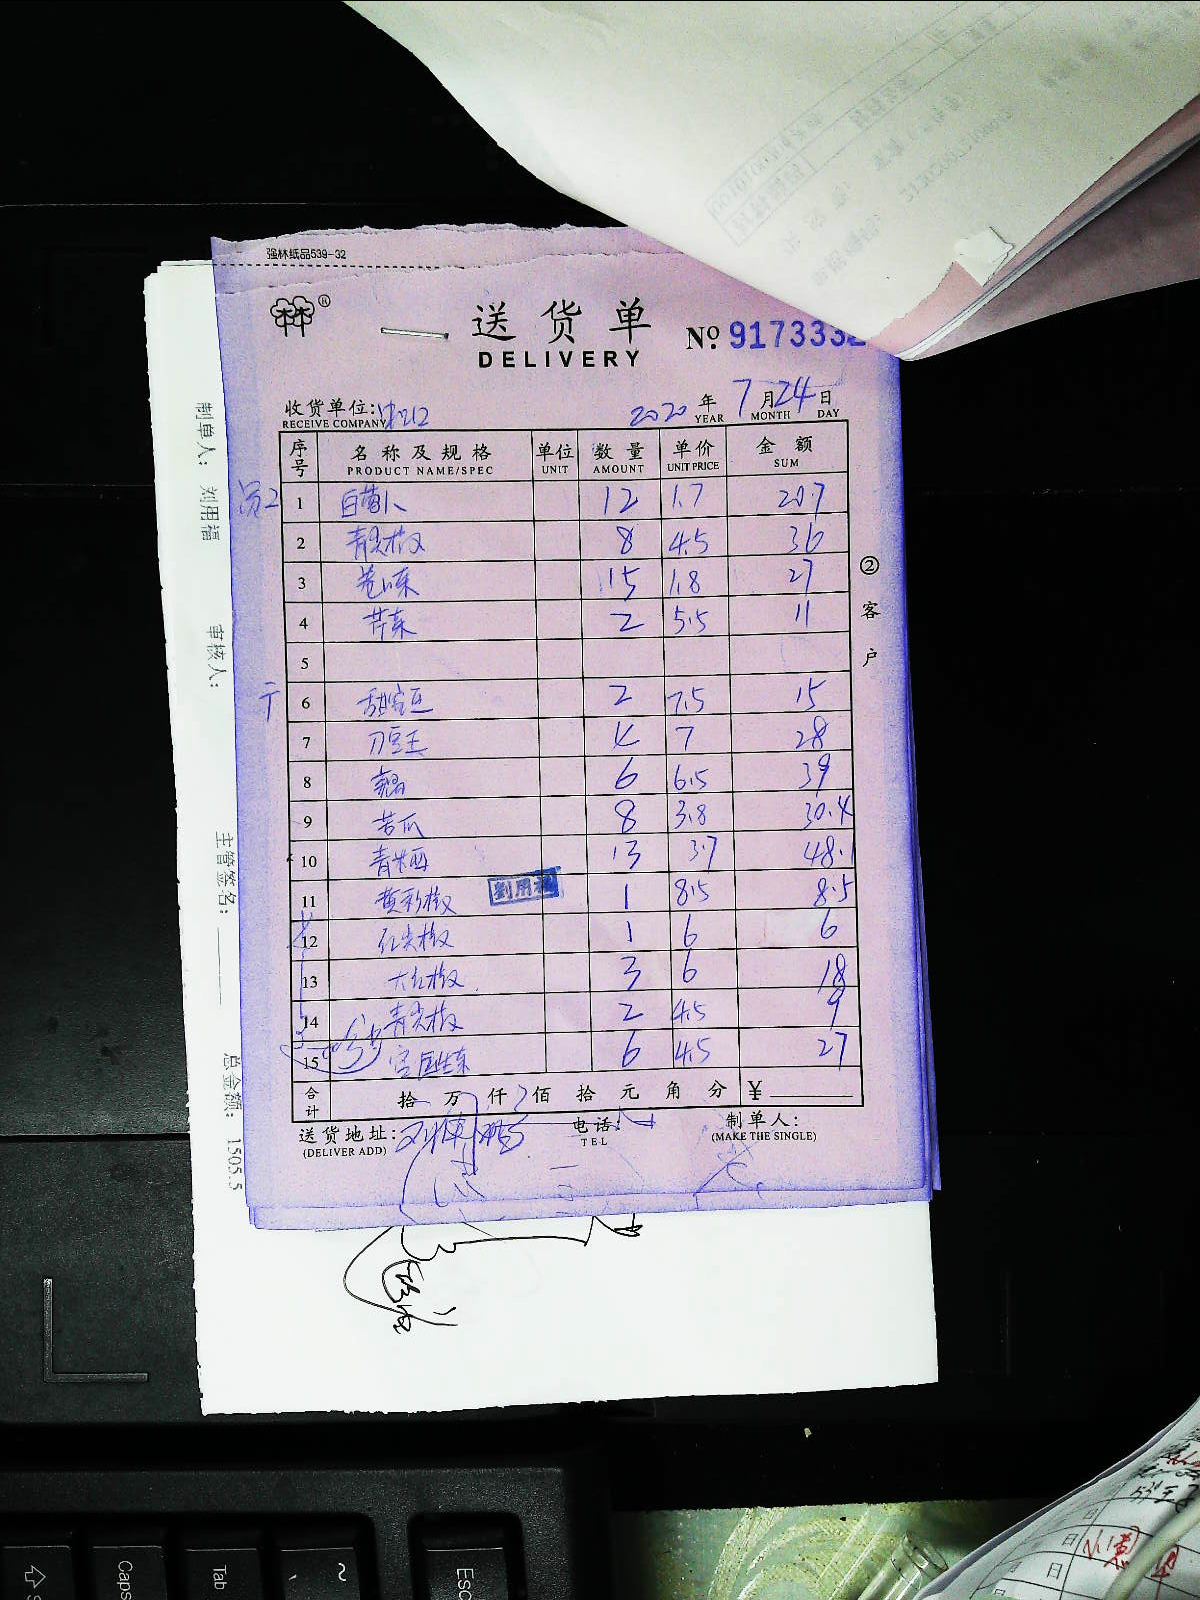 强林纸品539-32
林®
送货单
DELIVERY
№ 9173332
收货单位:
RECEIVE COMPANY
2020 年 7 月 24 日
YEAR MONTH DAY
序号 名称及规格 单位 数量 单价 金额
PRODUCT NAME/SPEC UNIT AMOUNT UNIT PRICE SUM
1 白萝卜 12 1.7 207
2 青尖椒 8 4.5 36
3 15 1.8 27
4 芹菜 2 5.5 11
5
6 甜蜜豆 2 7.5 15
7 刀豆王 4 7 28
8 6 6.5 39
9 苦瓜 8 3.8 30.4
10 青 13 3.7 48.1
11 黄彩椒 1 8.5 8.5
12 红尖椒 1 6 6
13 大红椒 3 6 18
14 青尖椒 2 4.5 9
15 6 4.5 27
合计 拾 万 仟 佰 拾 元 角 分 ¥
送货地址:
(DELIVER ADD)
电话:
TEL
制单人:
(MAKE THE SINGLE)
②客户
劉用福
制单人: 刘用福 审核人: 主管签名: 总金额: 1505.5
Caps
Tab
~
Esc